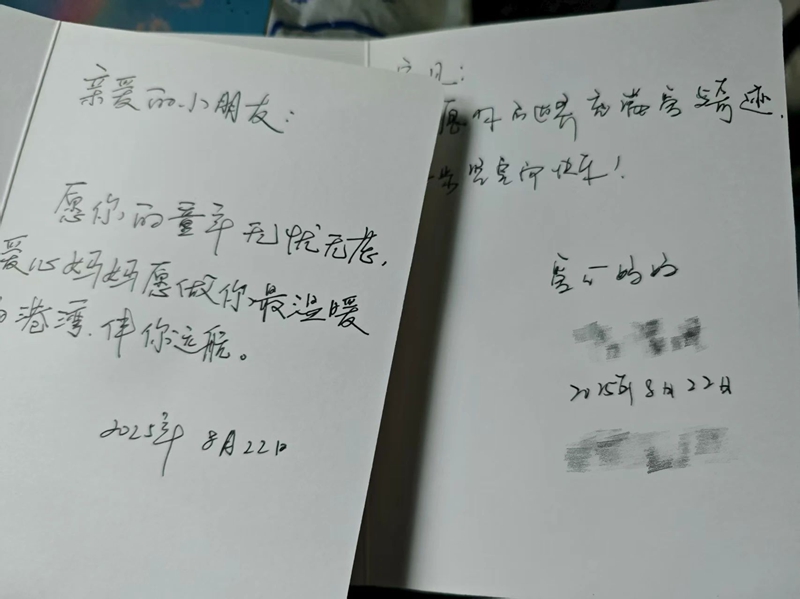 亲爱的小朋友:
愿你的童年无忧无虑,
爱心妈妈愿做你最温暖
港湾.伴你远航。
2025年8月22日
愿你的世界充满爱与奇迹.
快乐!
爱心妈妈
2025年8月22日